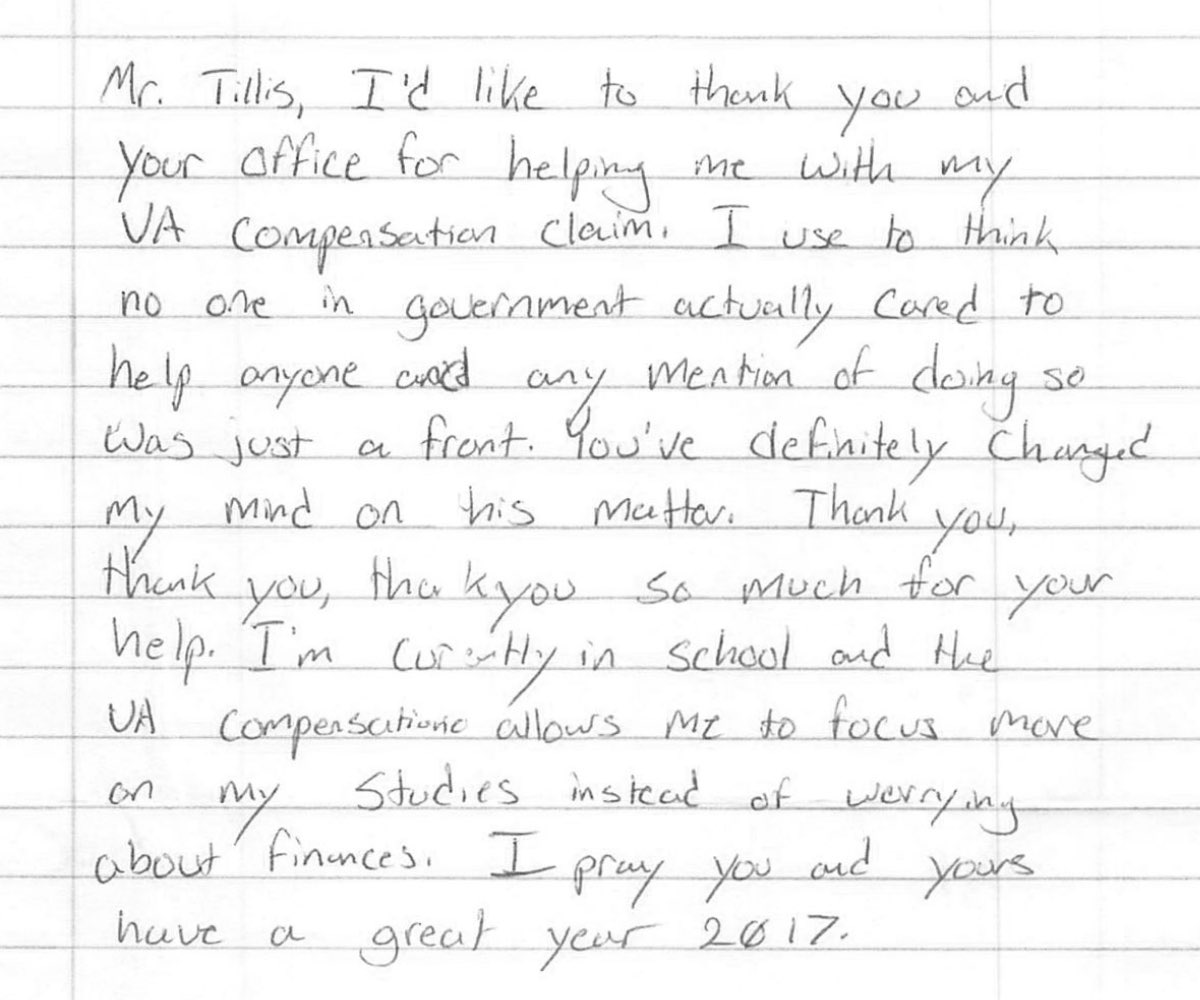 Mr. Tillis, I'd like to thank you and
your office for helping me with my
VA compensation claim. I use to think
no one in government actually cared to
help anyone and any mention of doing so
was just a front. You've definitely changed
my mind on his matter. Thank you,
thank you, tha k you so much for your
help. I'm currently in school and the
VA compensation allows me to focus more
on my studies instead of worrying
about finances. I pray you and yours
have a great year 2017.